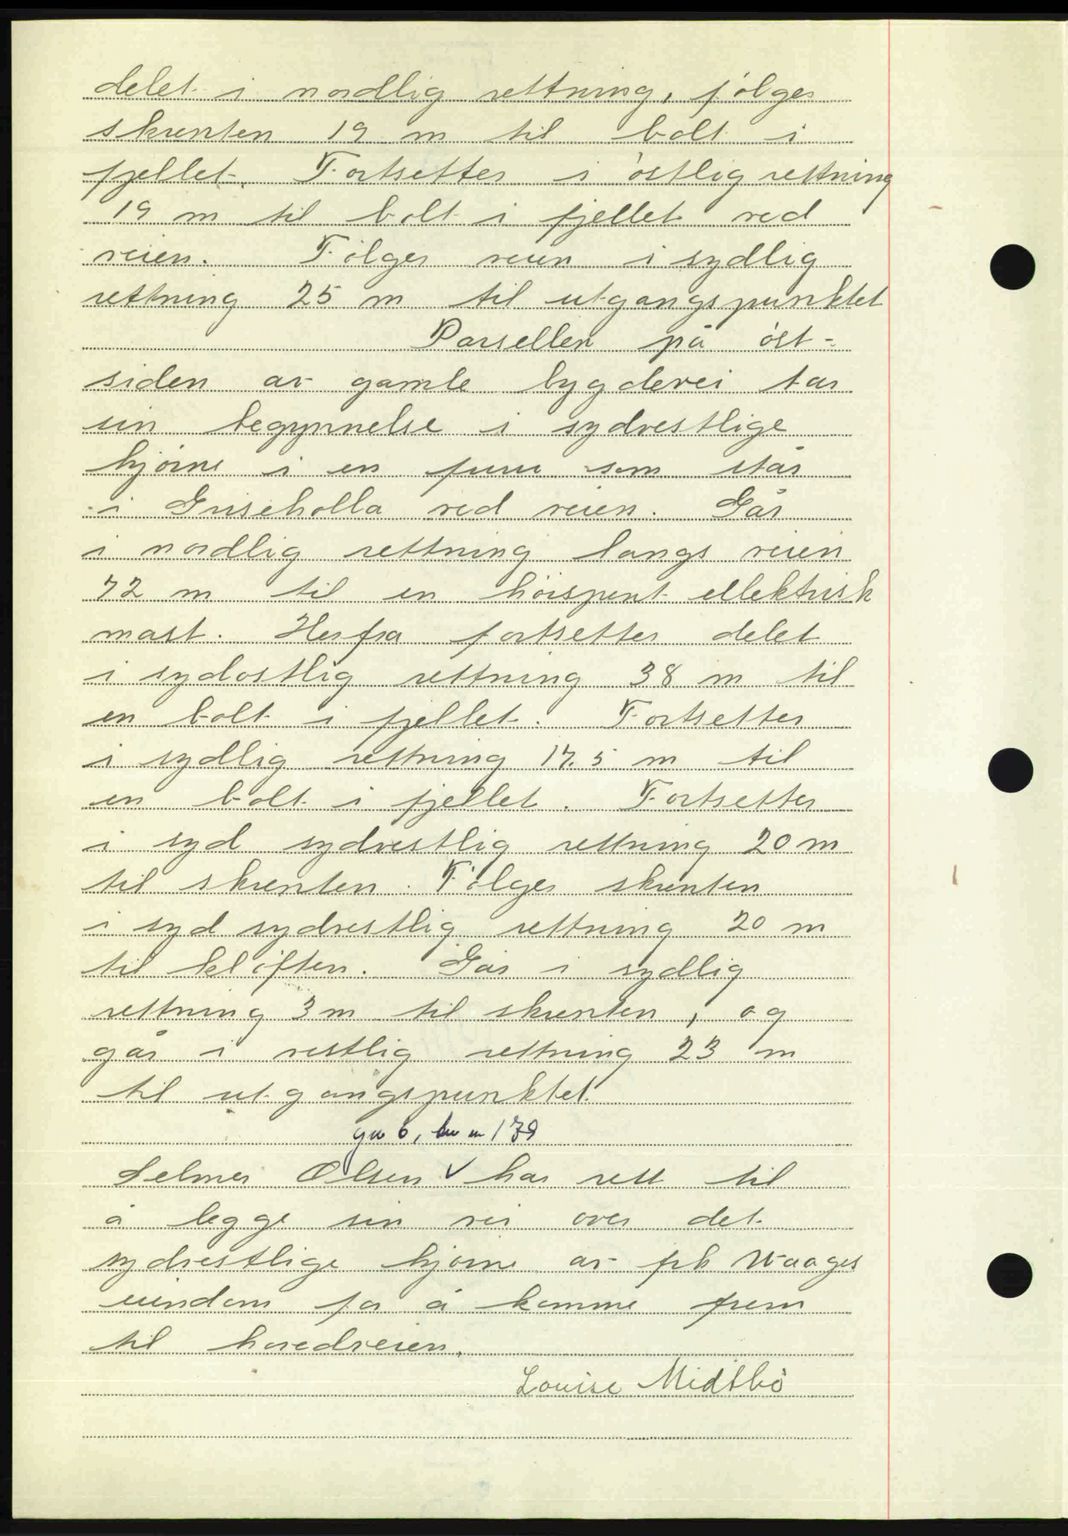 delet i nordlig rettning, følges
skrenten 19 m til bolt i
fjellet. Fortsetter i östlig rettning
19 m til bolt i fjellet ved
veien. Fölger veien i sydlig
rettning 25 m til utgangspunktet
Parsellen på öst-
siden av gamle bygdevei tar
sin begynnelse i sydvestlige
hjörne i en furu som står
i Griseholla ved veien. Går
i nordlig rettning langs veien
72 m til en höispent ellektrisk
mast. Herfra fortsetter delet
i sydostlig rettning 38 m til
en bolt i fjellet. Fortsetter
i sydlig rettning 17.5 m til
en bolt i fjellet. Fortsetter
i syd sydvestlig rettning 20 m
til skrenten. Fölger skrenten
i syd sydvestlig rettning 20 m
til klöften. Går i sydlig
rettning 3 m til skrenten, og
går i vestlig rettning 23 m
til utgangspunktet.
gn 6, bn 179
Selmer Olsen √ har rett til
å legge sin vei over det
sydvestlige hjörne av frk Waages
eiendom for å komme frem
til hovedveien.
Louise Midtbö